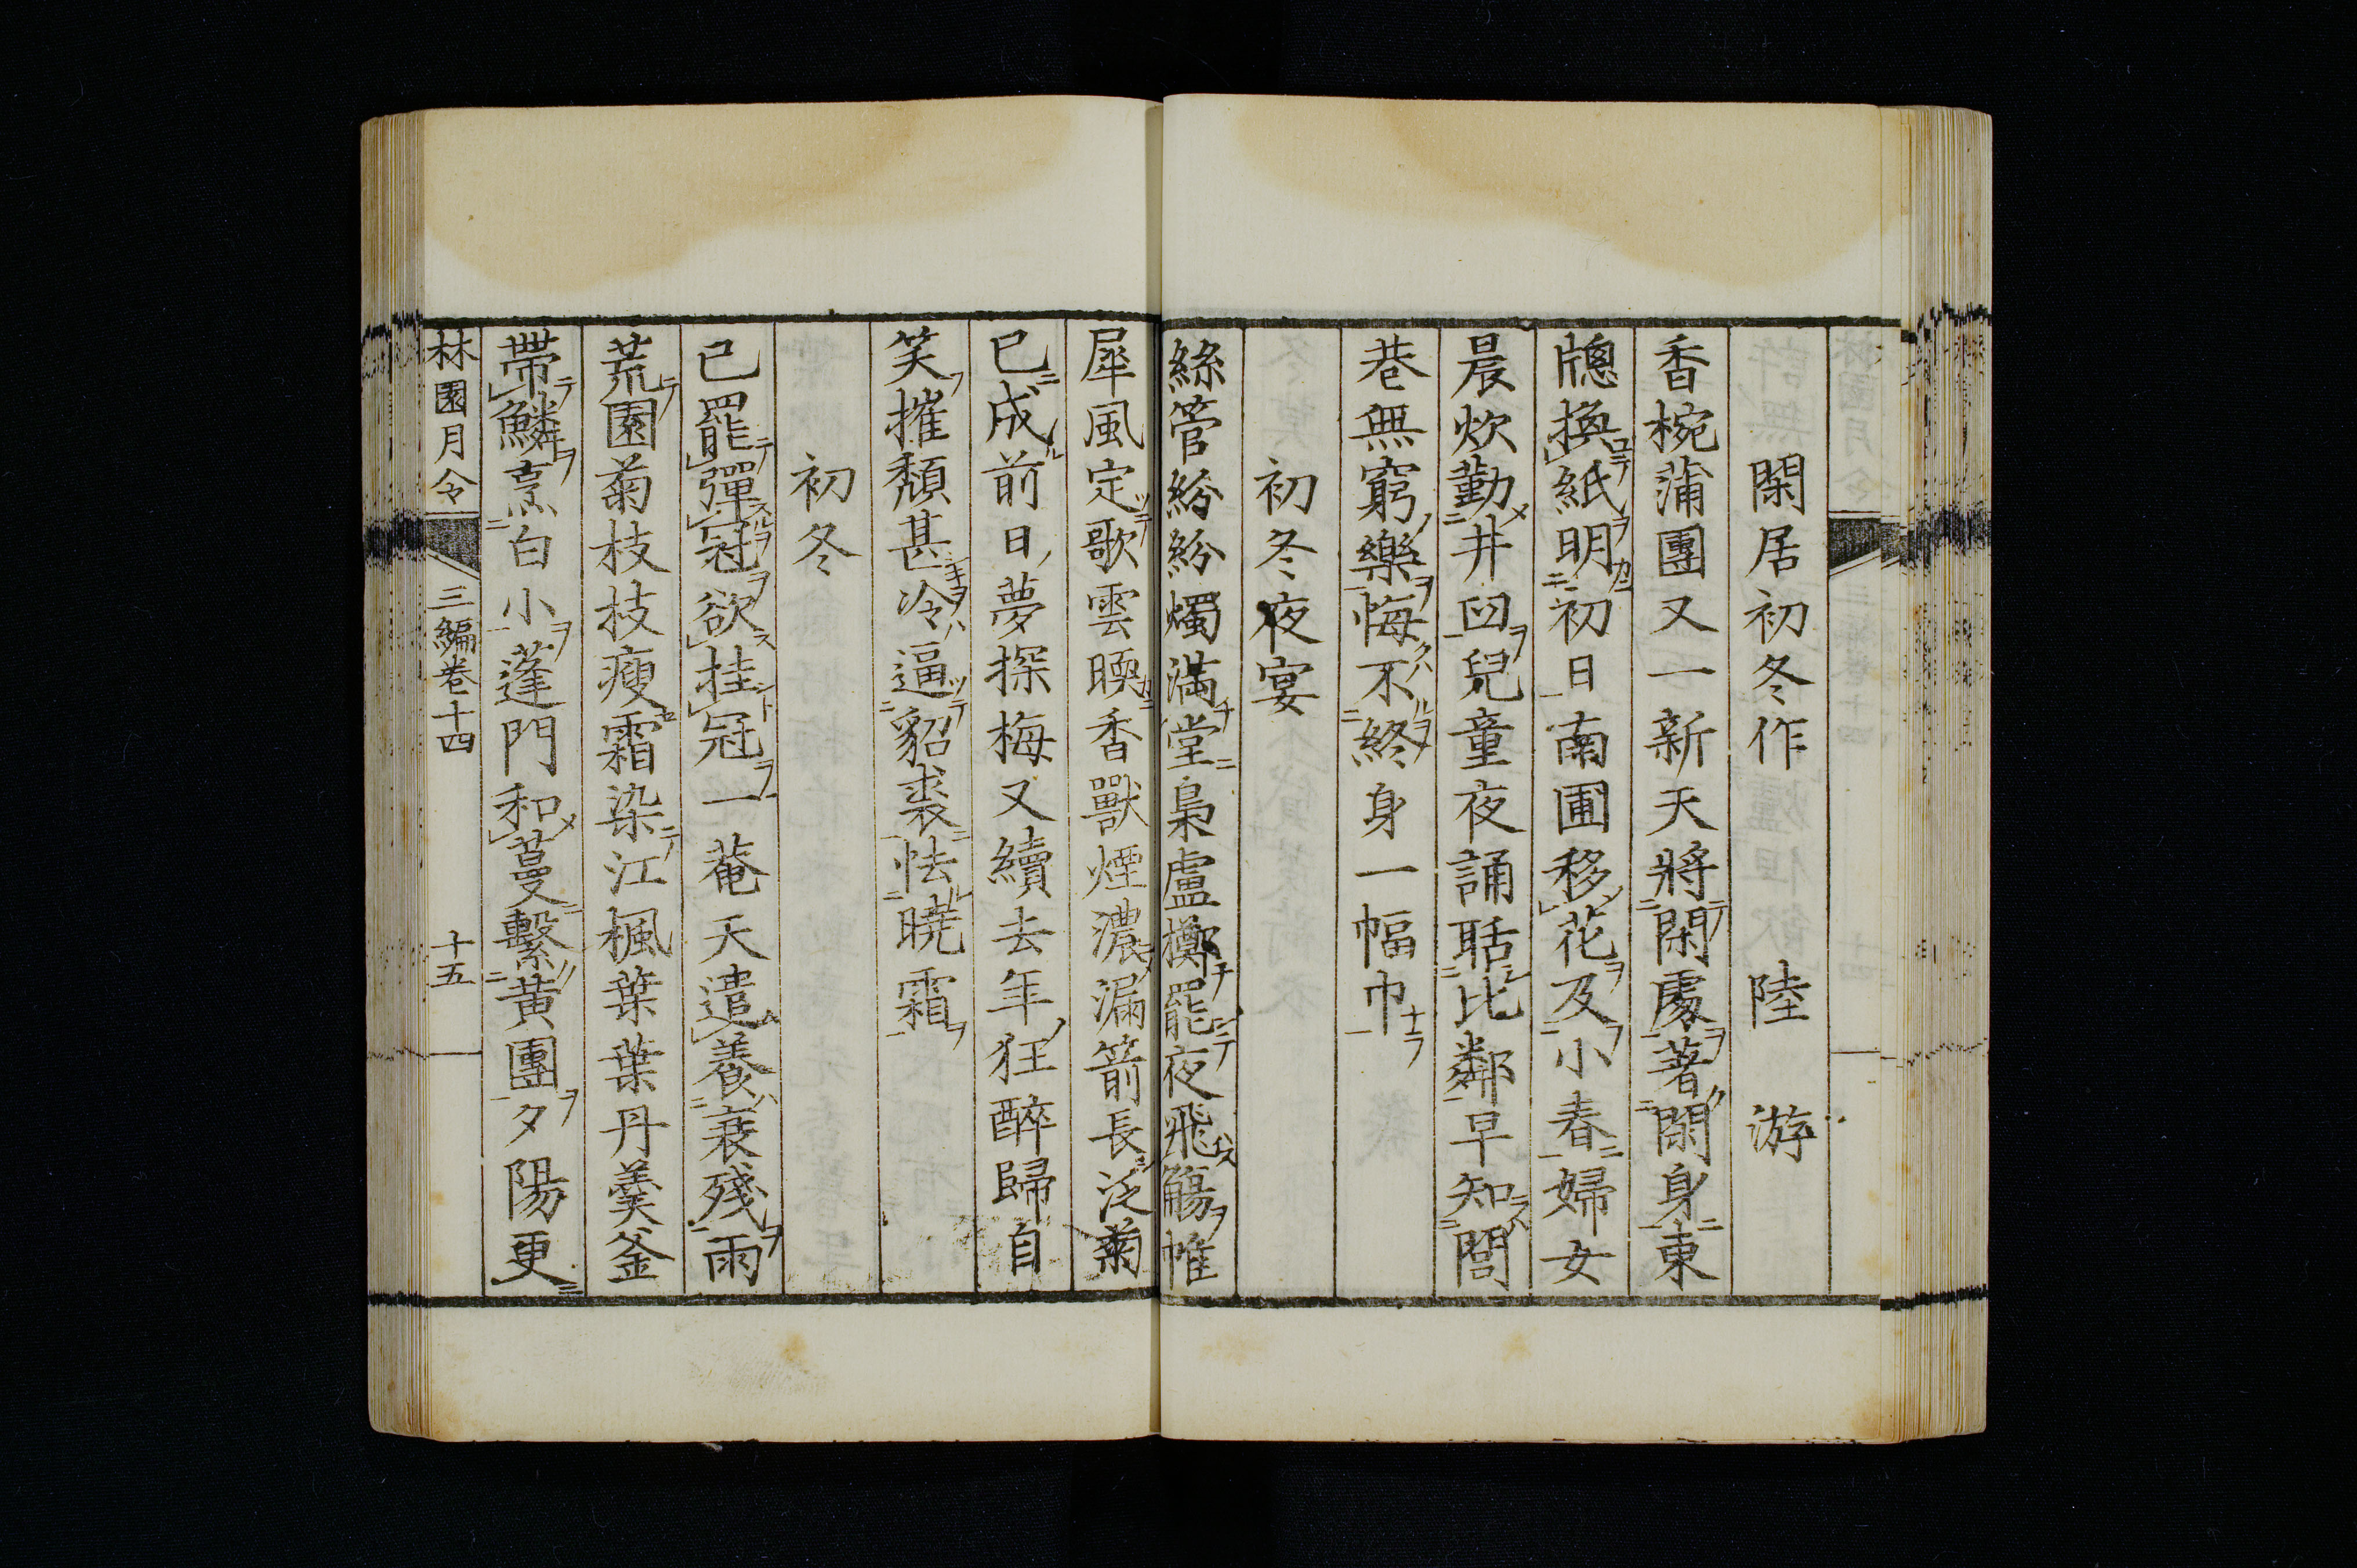 閑居初冬作 陸游
香椀蒲團又一新天將閑處著閑身東
牎換紙明初日南圃移花及小春婦女
晨炊勤井臼兒童夜誦聒比鄰早知閭
巷無窮樂悔不終身一幅巾
初冬夜宴
絲管紛紛燭滿堂梟盧擲罷夜飛觴帷
犀風定歌雲暖香獸煙濃漏箭長泛菊
已成前日夢探梅又續去年狂醉歸自
笑摧頹甚冷逼貂裘怯曉霜
初冬
已罷彈冠欲挂冠一菴天遣養衰殘雨
荒園菊枝枝瘦霜染江楓葉葉丹羹釜
帶鱗烹白小蓬門和蔓繫黃團夕陽更
林園月令 三編卷十四 十五